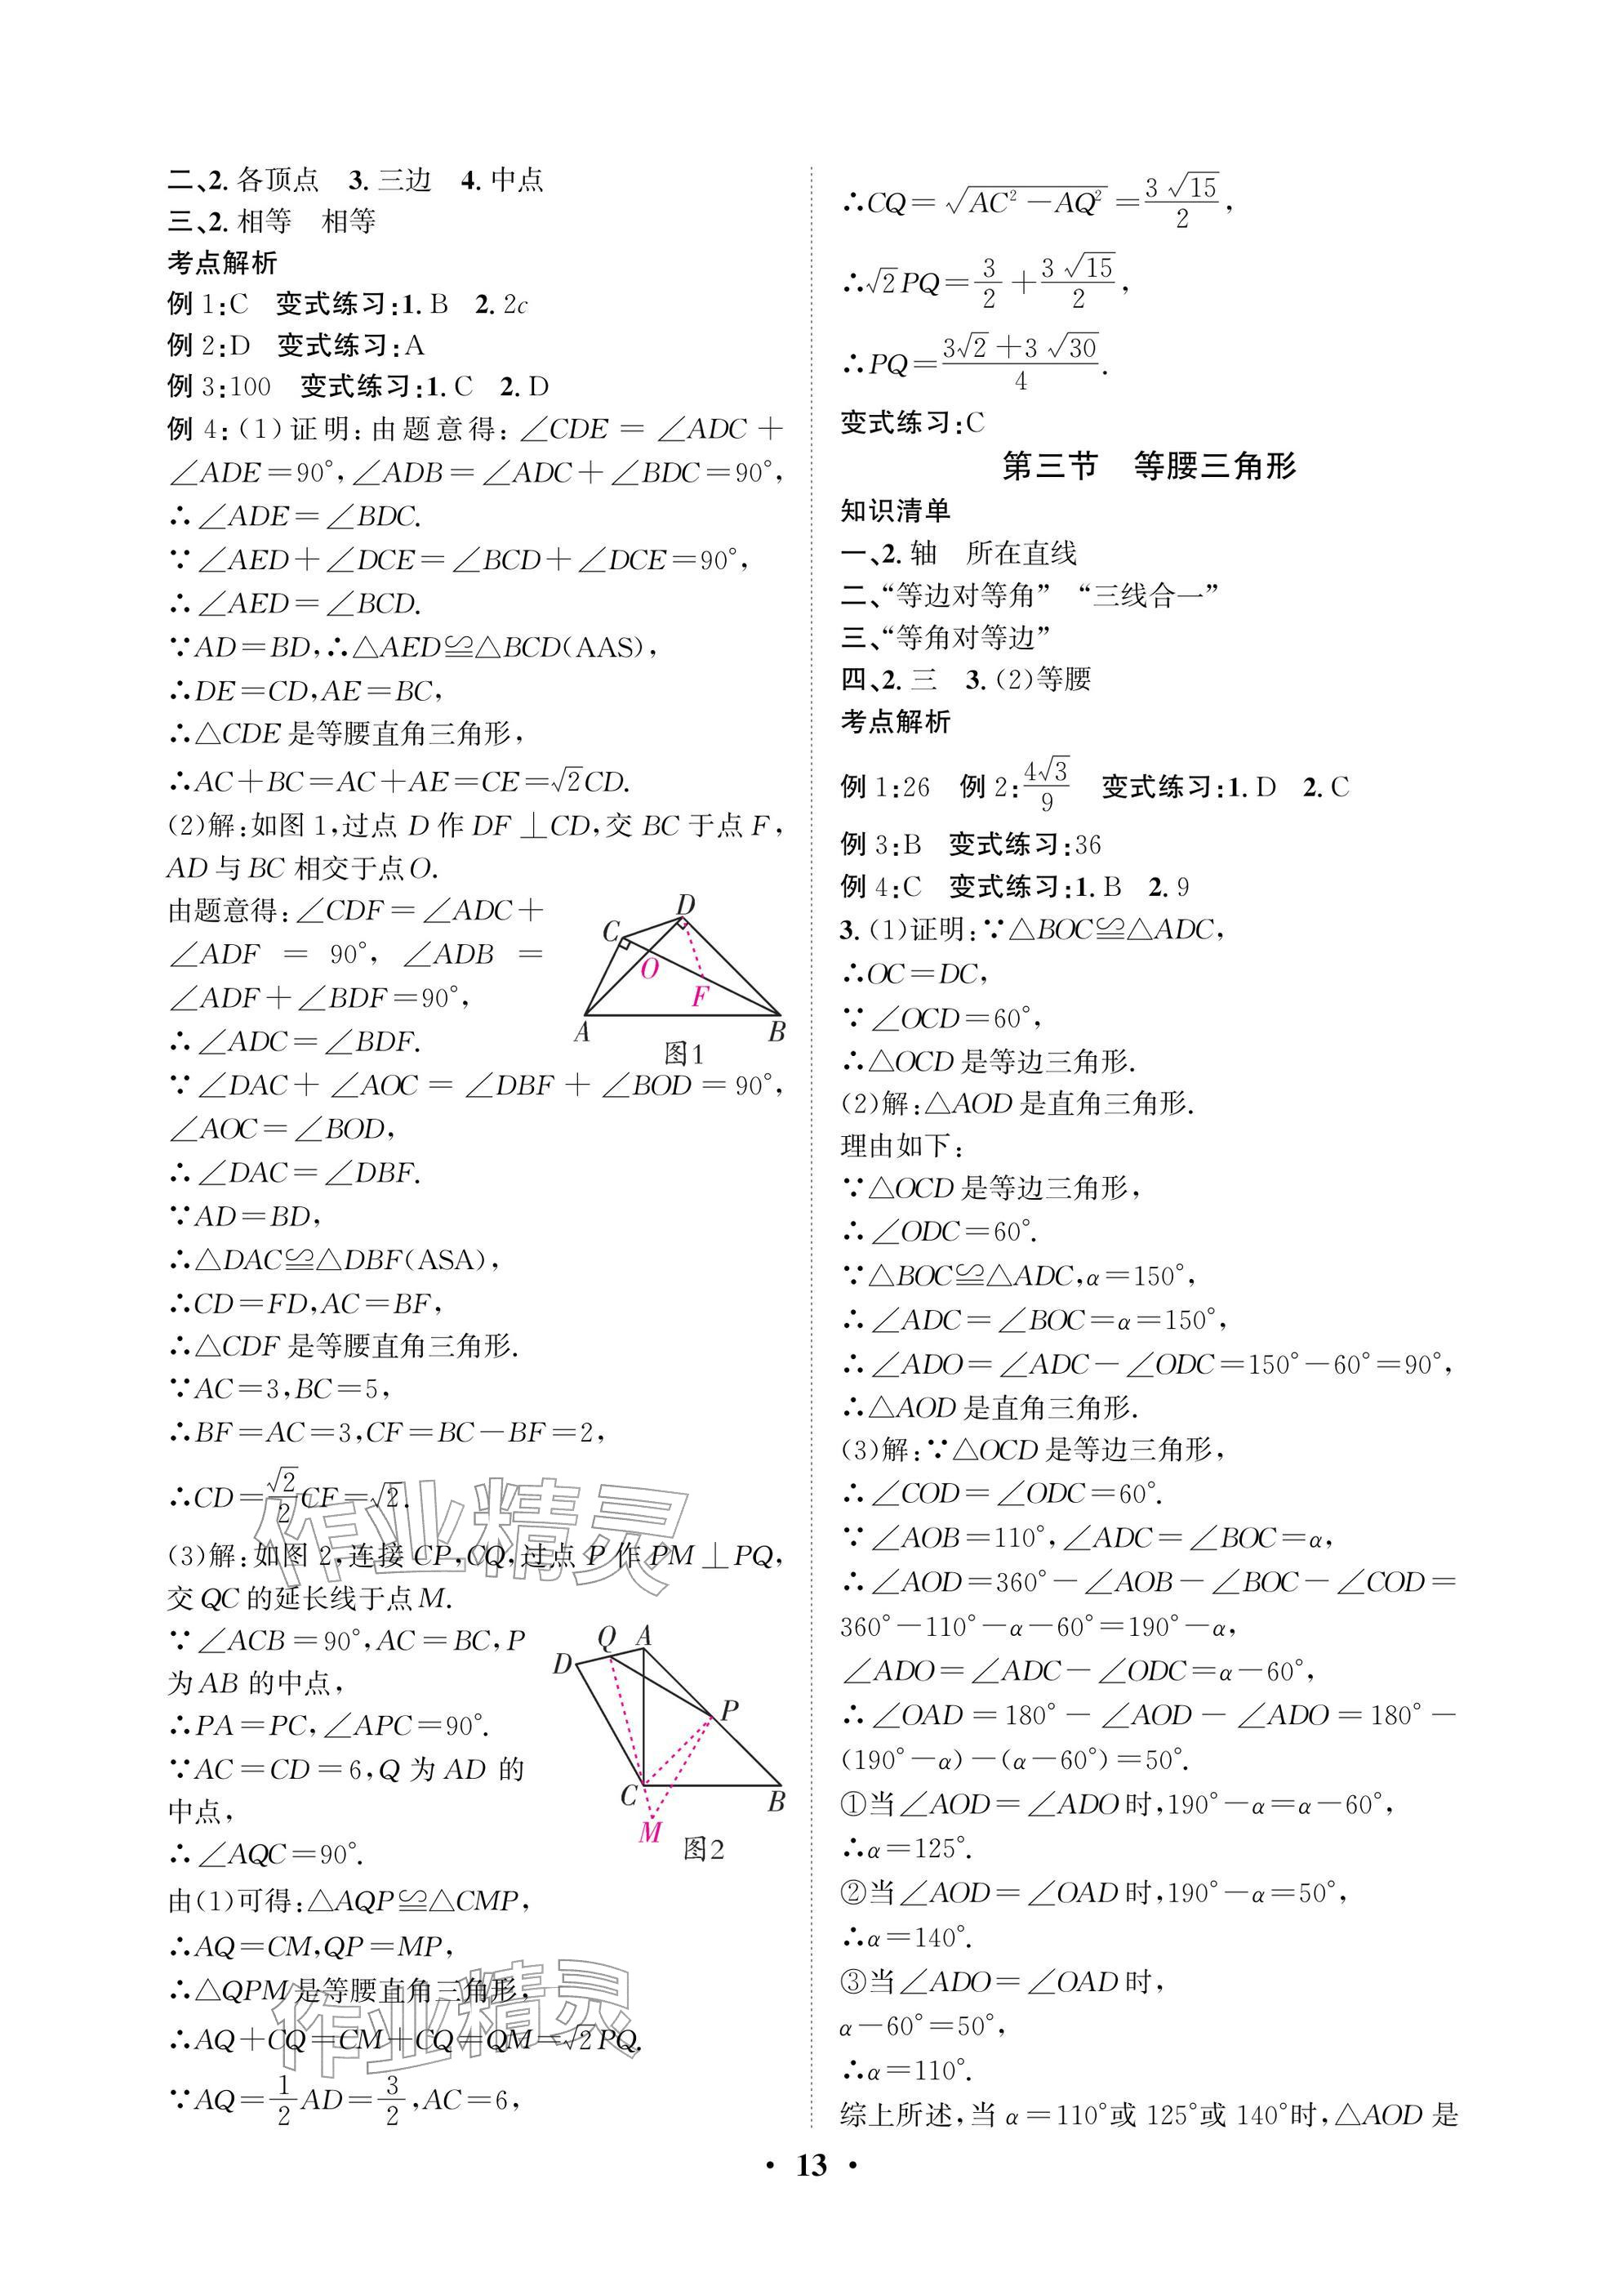 二、2. 各顶点　3. 三边　4. 中点
三、2. 相等　相等
考点解析
例 1:C　变式练习:1. B　2. 2c
例 2:D　变式练习:A
例 3:100　变式练习:1. C　2. D
例 4:(1)证明:由题意得:∠CDE=∠ADC+
∠ADE=90°,∠ADB=∠ADC+∠BDC=90°,
∴∠ADE=∠BDC.
∵∠AED+∠DCE=∠BCD+∠DCE=90°,
∴∠AED=∠BCD.
∵AD=BD,∴△AED≌△BCD(AAS),
∴DE=CD,AE=BC,
∴△CDE 是等腰直角三角形,
∴AC+BC=AC+AE=CE=√2CD.
(2)解:如图 1,过点 D 作 DF⊥CD,交 BC 于点 F,
AD 与 BC 相交于点 O.
由题意得:∠CDF=∠ADC+
∠ADF=90°,∠ADB=
∠ADF+∠BDF=90°,
∴∠ADC=∠BDF.
D
C
O
F
A
B
图1
∵∠DAC+∠AOC=∠DBF+∠BOD=90°,
∠AOC=∠BOD,
∴∠DAC=∠DBF.
∵AD=BD,
∴△DAC≌△DBF(ASA),
∴CD=FD,AC=BF,
∴△CDF 是等腰直角三角形.
∵AC=3,BC=5,
∴BF=AC=3,CF=BC-BF=2,
∴CD=√2/2CF=√2.
作业精灵
(3)解:如图 2,连接 CP,CQ,过点 P 作 PM⊥PQ,
交 QC 的延长线于点 M.
∵∠ACB=90°,AC=BC,P
为 AB 的中点,
∴PA=PC,∠APC=90°.
∵AC=CD=6,Q 为 AD 的
中点,
∴∠AQC=90°.
Q
A
D
P
C
B
M
图2
由(1)可得:△AQP≌△CMP,
∴AQ=CM,QP=MP,
∴△QPM 是等腰直角三角形,
作业精灵
∴AQ+CQ=CM+CQ=QM=√2PQ.
∵AQ=1/2AD=3/2,AC=6,
∴CQ=√(AC²-AQ²)=3√15/2,
∴√2PQ=3/2+3√15/2,
∴PQ=(3√2+3√30)/4.
变式练习:C
第三节　等腰三角形
知识清单
一、2. 轴　所在直线
二、“等边对等角”　“三线合一”
三、“等角对等边”
四、2. 三　3. (2)等腰
考点解析
例 1:26　例 2:4√3/9　变式练习:1. D　2. C
例 3:B　变式练习:36
例 4:C　变式练习:1. B　2. 9
3. (1)证明:∵△BOC≌△ADC,
∴OC=DC,
∵∠OCD=60°,
∴△OCD 是等边三角形.
(2)解:△AOD 是直角三角形.
理由如下:
∵△OCD 是等边三角形,
∴∠ODC=60°.
∵△BOC≌△ADC,α=150°,
∴∠ADC=∠BOC=α=150°,
∴∠ADO=∠ADC-∠ODC=150°-60°=90°,
∴△AOD 是直角三角形.
(3)解:∵△OCD 是等边三角形,
∴∠COD=∠ODC=60°.
∵∠AOB=110°,∠ADC=∠BOC=α,
∴∠AOD=360°-∠AOB-∠BOC-∠COD=
360°-110°-α-60°=190°-α,
∠ADO=∠ADC-∠ODC=α-60°,
∴∠OAD=180°-∠AOD-∠ADO=180°-
(190°-α)-(α-60°)=50°.
①当∠AOD=∠ADO 时,190°-α=α-60°,
∴α=125°.
②当∠AOD=∠OAD 时,190°-α=50°,
∴α=140°.
③当∠ADO=∠OAD 时,
α-60°=50°,
∴α=110°.
综上所述,当 α=110°或 125°或 140°时,△AOD 是
• 13 •